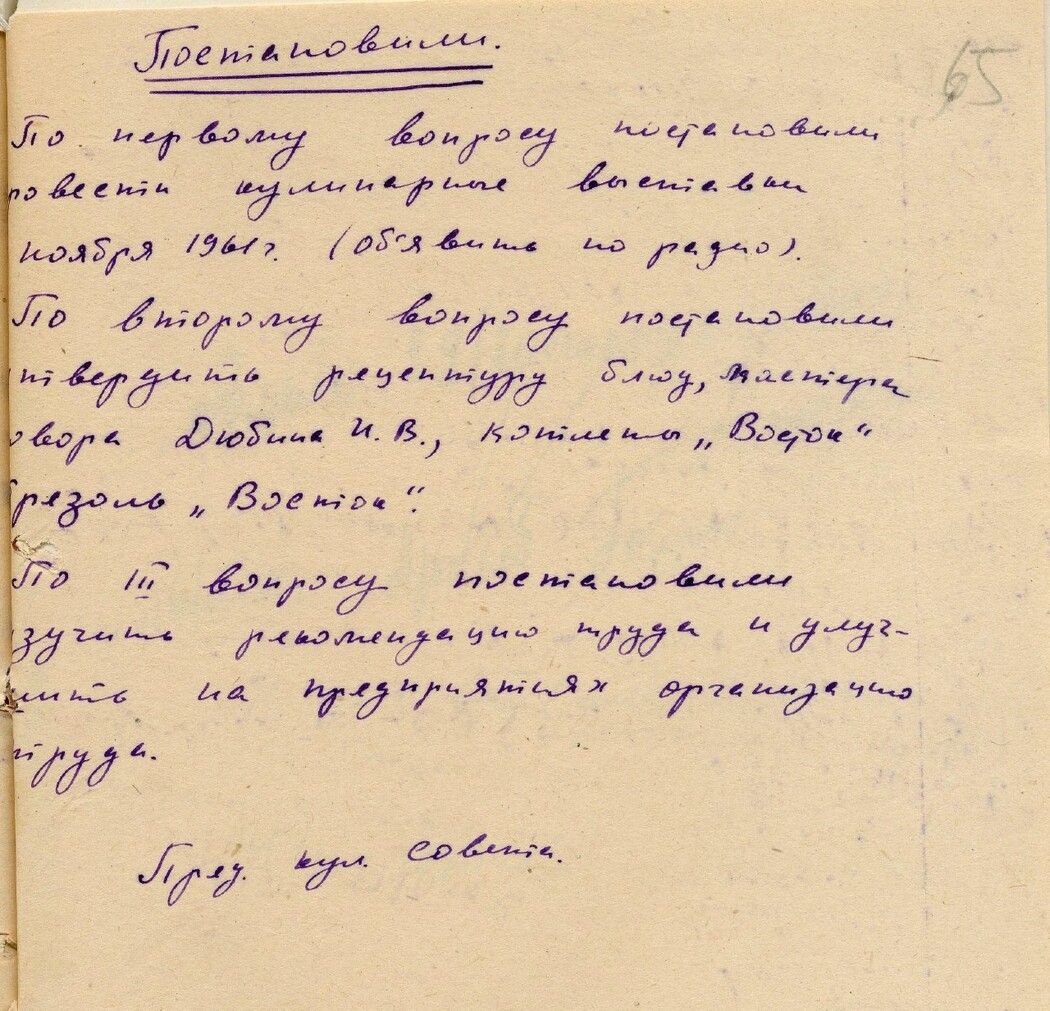 Постановили.
65
По первому вопросу постановили
ровести кулинарные выставки
ноября 1961г. (объявить по радио).
По второму вопросу постановили
твердить рецептуру блюд, мастера
овара Дюбина И.В., котлеты „Восток“
резоль „Восток“.
По III вопросу постановили
зучить рекомендацию труда и улуч-
шить на предприятиях организацию
труда.
Пред. кул. совета.